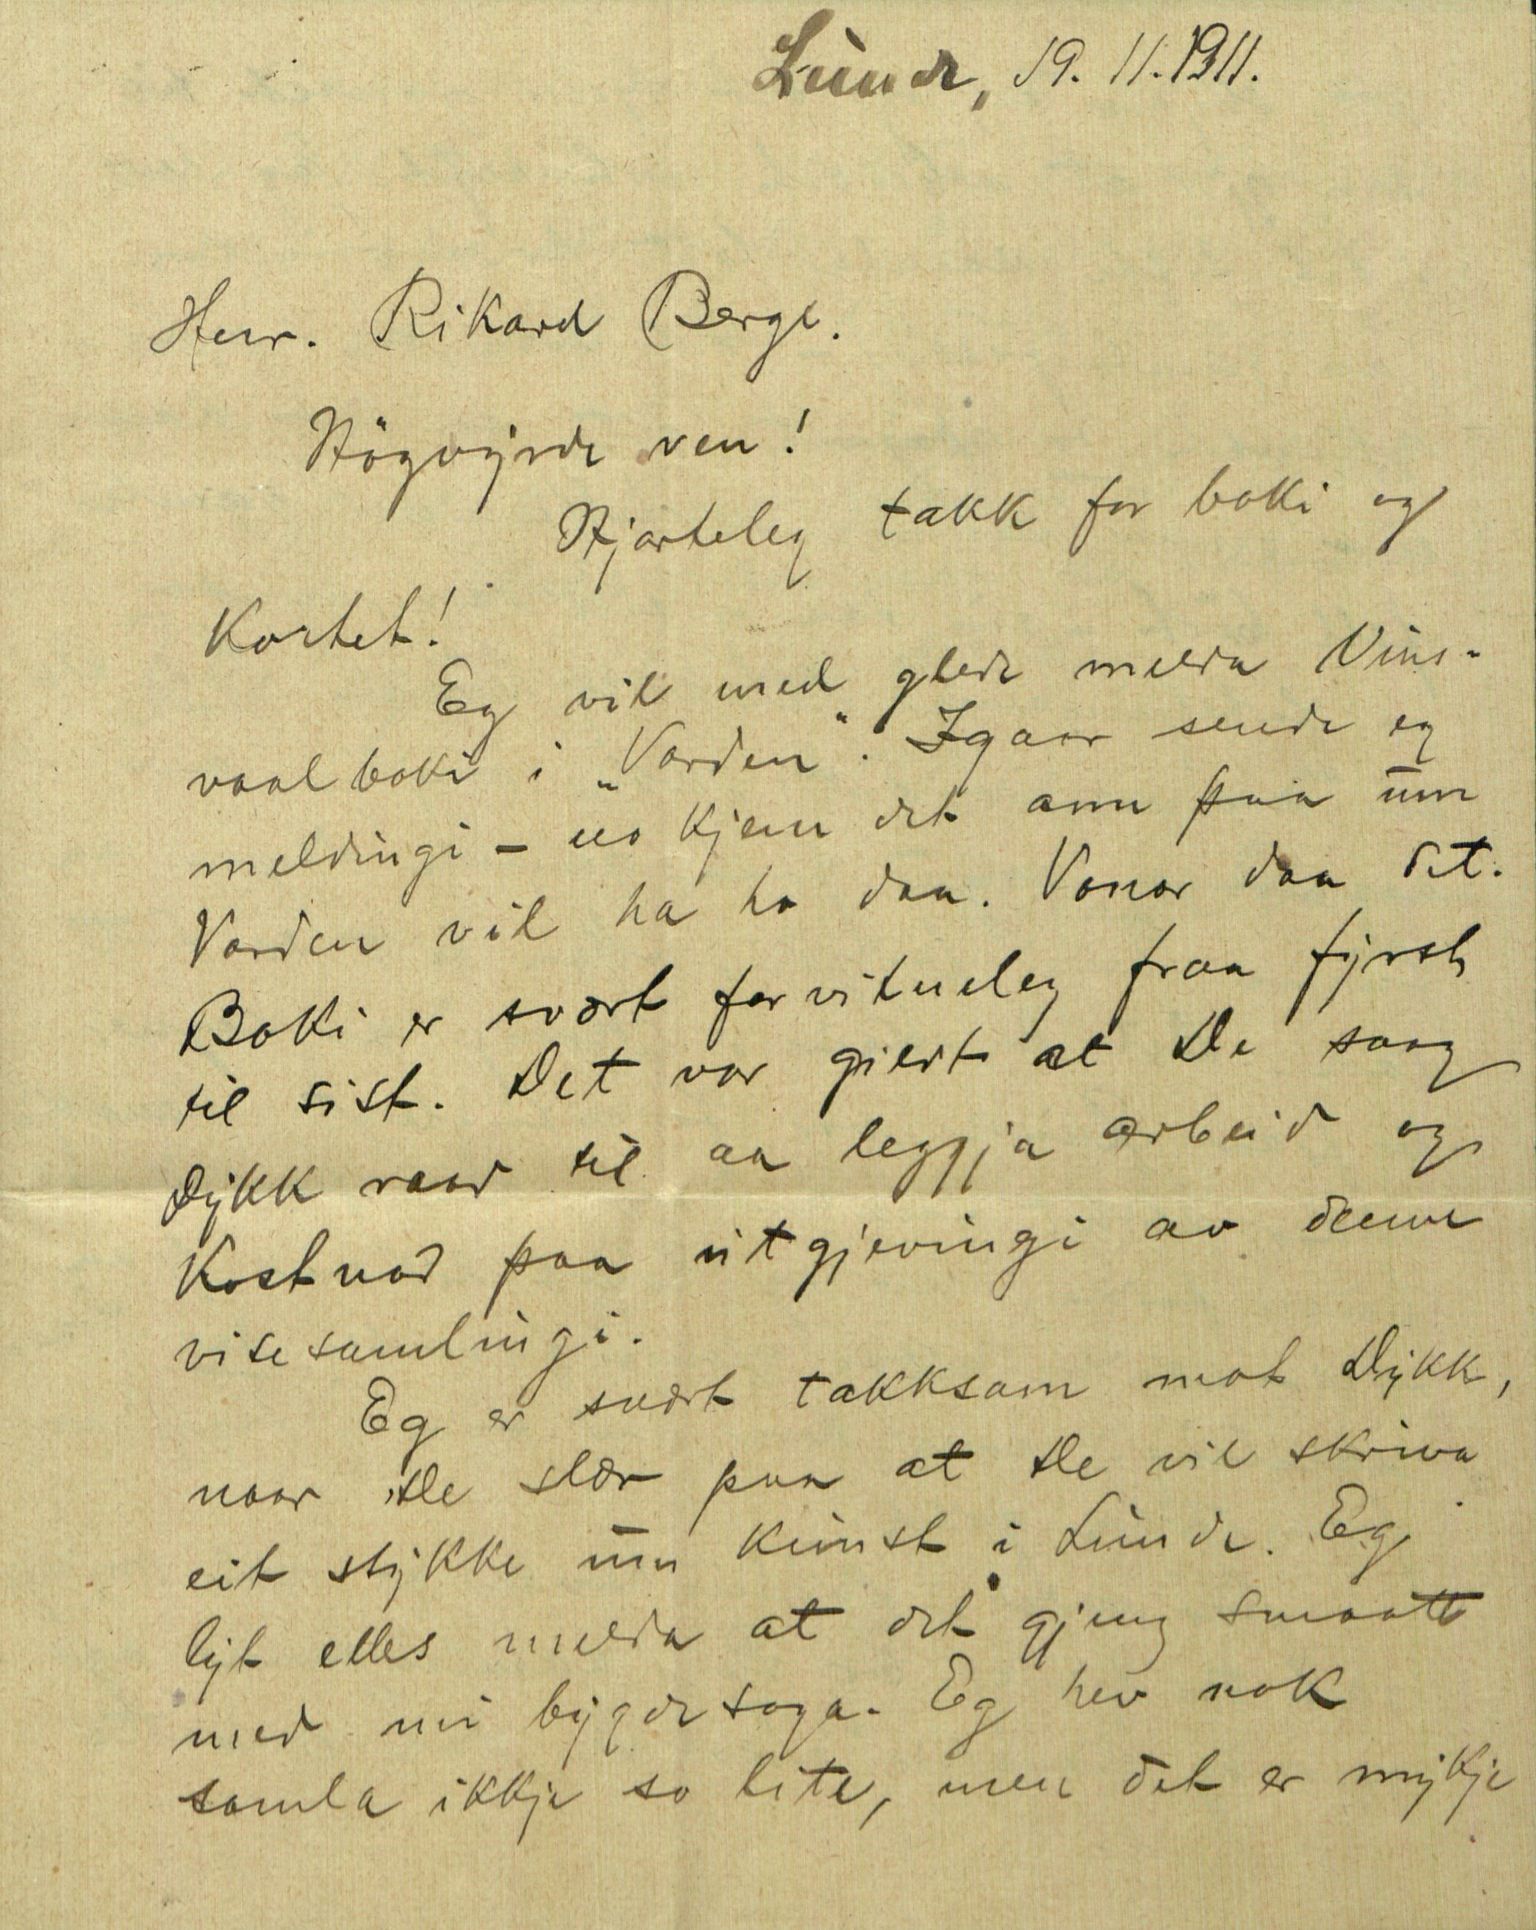 Lunde, 19. 11. 1911.
Herr. Rikard Berge.
Högvyrde ven!
Hjarteleg takk for boki og
Kortet!
Eg vil med glede melda Vins-
vaalboki i „Varden“. Igaar sende eg
meldingi - no kjem det ann paa um
Varden vil ha ho daa. Vonar daa det.
Boki er svært forvitneleg fraa fyrst
til sist. Det var gildt at De saag
Dykk raad til aa leggja arbeid og
Kostnad paa utgjevingi av denne
visesamlingi.
Eg er svært takksam mot Dykk,
naar De slær paa at De vil skriva
eit stykke um Kunst i Lunde. Eg
lyt elles melda at det gjeng smaatt
med mi bygdesoga. Eg hev nok
samla ikkje so lite, men det er mykje